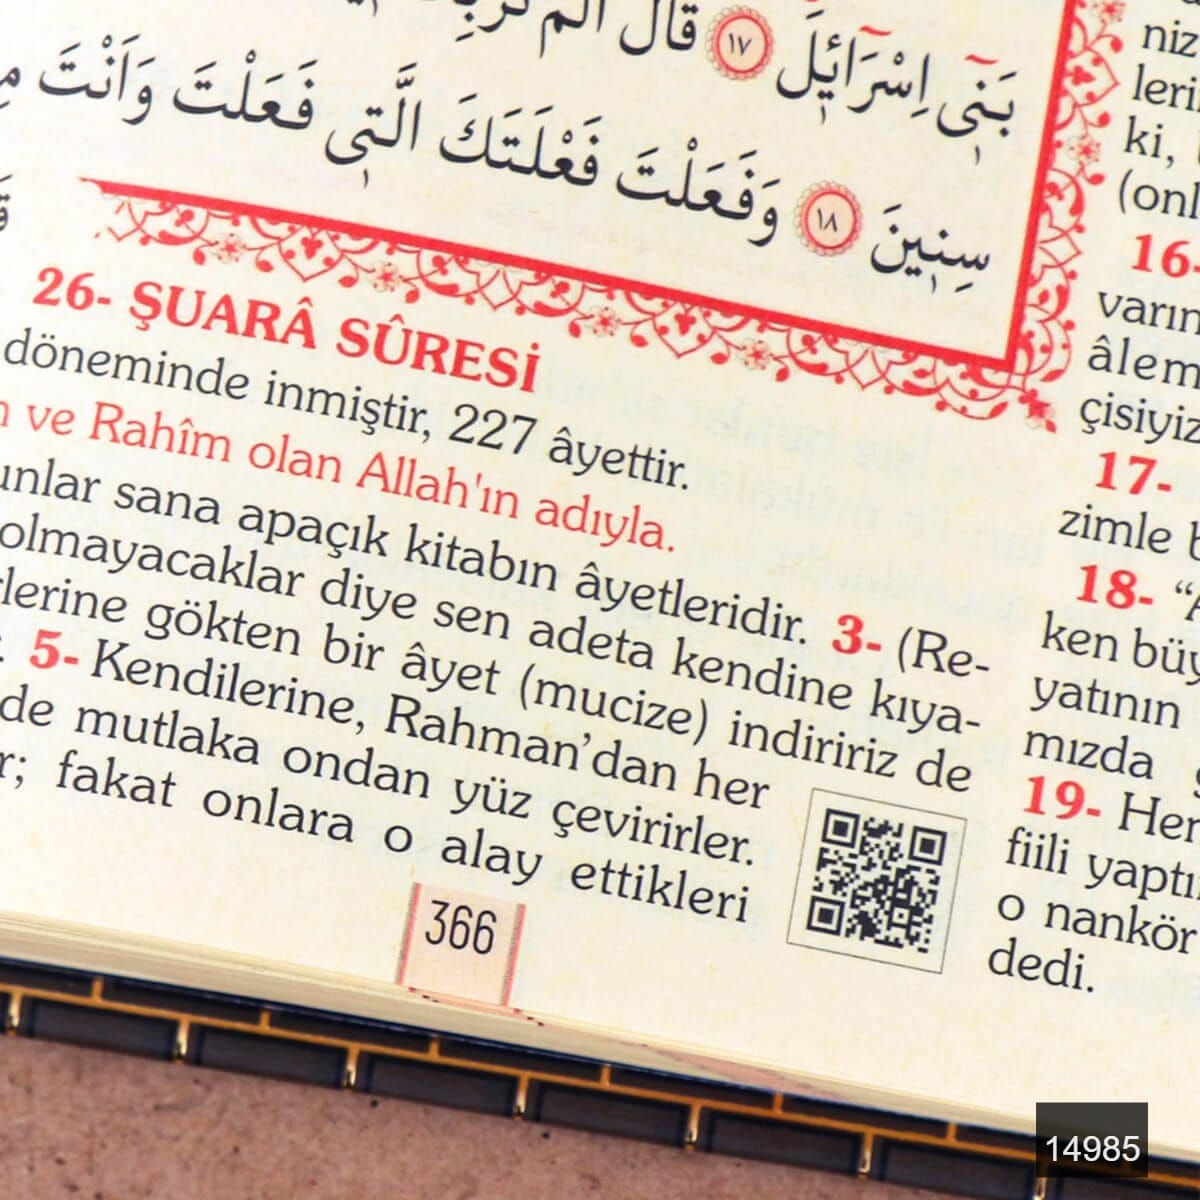 بَنٖٓي اِسْرَٓائٖلَ ١٧ قَالَ اَلَمْ
سِنٖينَ ١٨ وَفَعَلْتَ فَعْلَتَكَ الَّتٖي فَعَلْتَ وَاَنْتَ
26- ŞUARÂ SÛRESİ
döneminde inmiştir, 227 âyettir.
ve Rahîm olan Allah'ın adıyla.
sana apaçık kitabın âyetleridir. 3- (Re-
olmayacaklar diye sen adeta kendine kıya-
gökten bir âyet (mucize) indiririz de
5- Kendilerine, Rahman'dan her
de mutlaka ondan yüz çevirirler.
fakat onlara o alay ettikleri
366
niz
ki,
16-
varın
âlem
çisiyiz
17-
zimle
18-
ken büy
yatının
mızda
19- Her
fiili yaptı
o nankör
dedi.
14985